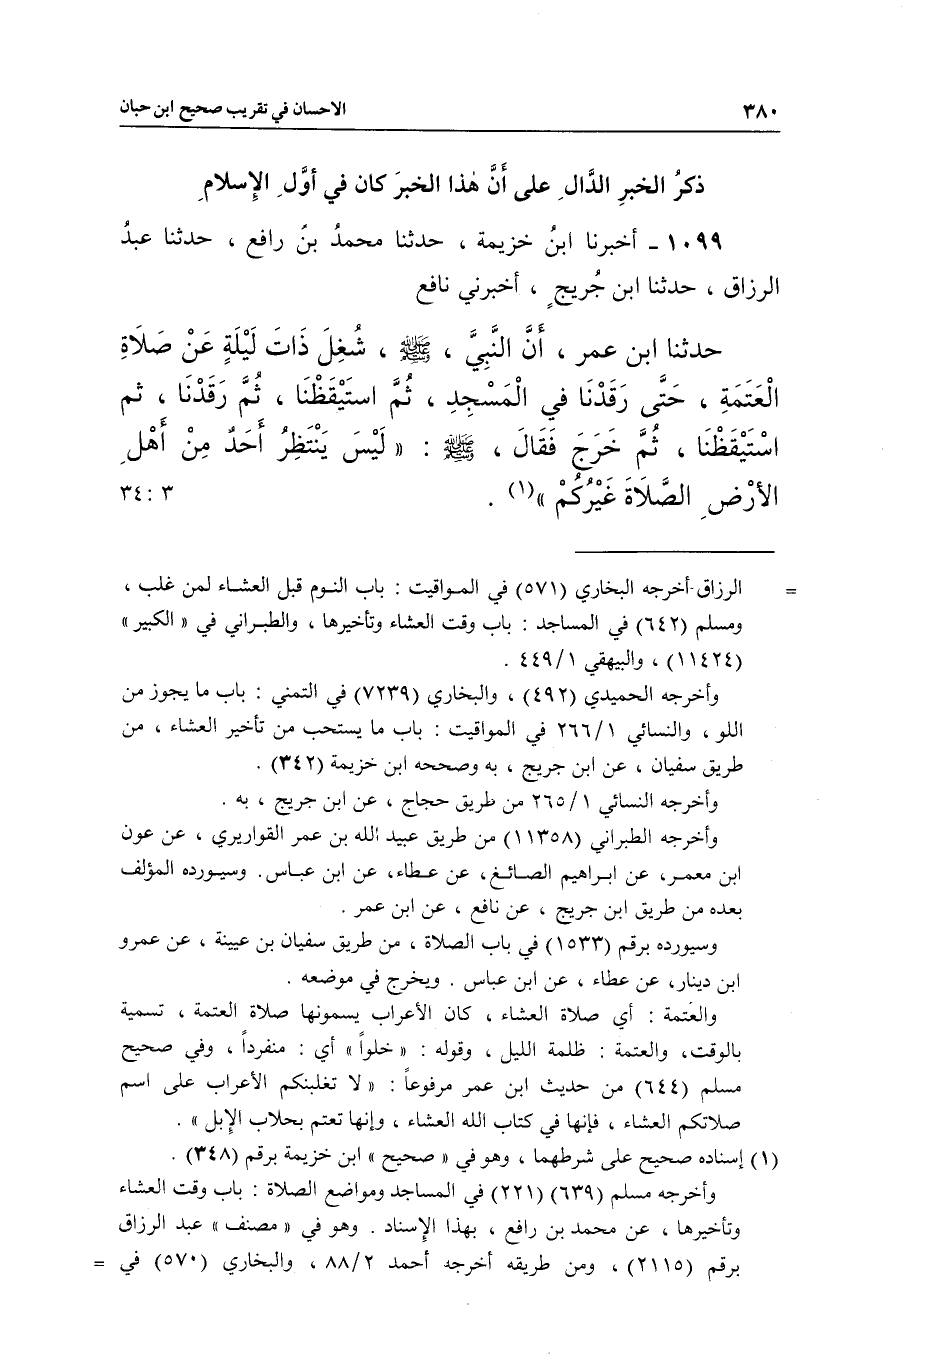 ٣٨٠ الاحسان في تقريب صحيح ابن حبان
ذكرُ الخبرِ الدَّالِ على أَنَّ هٰذا الخبرَ كان في أوَّلِ الإِسلامِ
١٠٩٩ - أخبرنا ابنُ خزيمة ، حدثنا محمدُ بنُ رافع ، حدثنا عبدُ
الرزاق ، حدثنا ابن جُريجٍ ، أخبرني نافع
حدثنا ابن عمر ، أَنَّ النَّبِيَّ ، ﷺ ، شُغِلَ ذَاتَ لَيْلَةٍ عَنْ صَلَاةِ
الْعَتَمَةِ ، حَتَّى رَقَدْنَا في الْمَسْجِدِ ، ثُمَّ استَيْقَظْنَا ، ثُمَّ رَقَدْنَا ، ثم
اسْتَيْقَظْنَا ، ثُمَّ خَرَجَ فَقَالَ ، ﷺ : « لَيْسَ يَنْتَظِرُ أَحَدٌ مِنْ أَهْلِ
الأَرْضِ الصَّلَاةَ غَيْرُكُمْ »(١) . ٣ : ٣٤
= الرزاق أخرجه البخاري (٥٧١) في المواقيت : باب النوم قبل العشاء لمن غلب ،
ومسلم (٦٤٢) في المساجد : باب وقت العشاء وتأخيرها ، والطبراني في « الكبير »
(١١٤٢٤) ، والبيهقي ٤٤٩/١ .
وأخرجه الحميدي (٤٩٢) ، والبخاري (٧٢٣٩) في التمني : باب ما يجوز من
اللو ، والنسائي ٢٦٦/١ في المواقيت : باب ما يستحب من تأخير العشاء ، من
طريق سفيان ، عن ابن جريج ، به وصححه ابن خزيمة (٣٤٢) .
وأخرجه النسائي ٢٦٥/١ من طريق حجاج ، عن ابن جريج ، به .
وأخرجه الطبراني (١١٣٥٨) من طريق عبيد الله بن عمر القواريري ، عن عون
ابن معمر، عن ابراهيم الصائغ، عن عطاء، عن ابن عباس. وسيورده المؤلف
بعده من طريق ابن جريج ، عن نافع ، عن ابن عمر .
وسيورده برقم (١٥٣٣) في باب الصلاة ، من طريق سفيان بن عيينة ، عن عمرو
ابن دينار، عن عطاء ، عن ابن عباس . ويخرج في موضعه .
والعَتمة : أي صلاة العشاء ، كان الأعراب يسمونها صلاة العتمة ، تسمية
بالوقت، والعتمة : ظلمة الليل ، وقوله : « خلواً » أي : منفرداً ، وفي صحيح
مسلم (٦٤٤) من حديث ابن عمر مرفوعاً : « لا تغلبنكم الأعراب على اسم
صلاتكم العشاء ، فإنها في كتاب الله العشاء ، وإنها تعتم بحلاب الإبل » .
(١) إسناده صحيح على شرطهما ، وهو في « صحيح » ابن خزيمة برقم (٣٤٨) .
وأخرجه مسلم (٦٣٩) (٢٢١) في المساجد ومواضع الصلاة : باب وقت العشاء
وتأخيرها ، عن محمد بن رافع ، بهذا الإسناد . وهو في « مصنف » عبد الرزاق
برقم (٢١١٥) ، ومن طريقه أخرجه أحمد ٨٨/٢ ، والبخاري (٥٧٠) في =